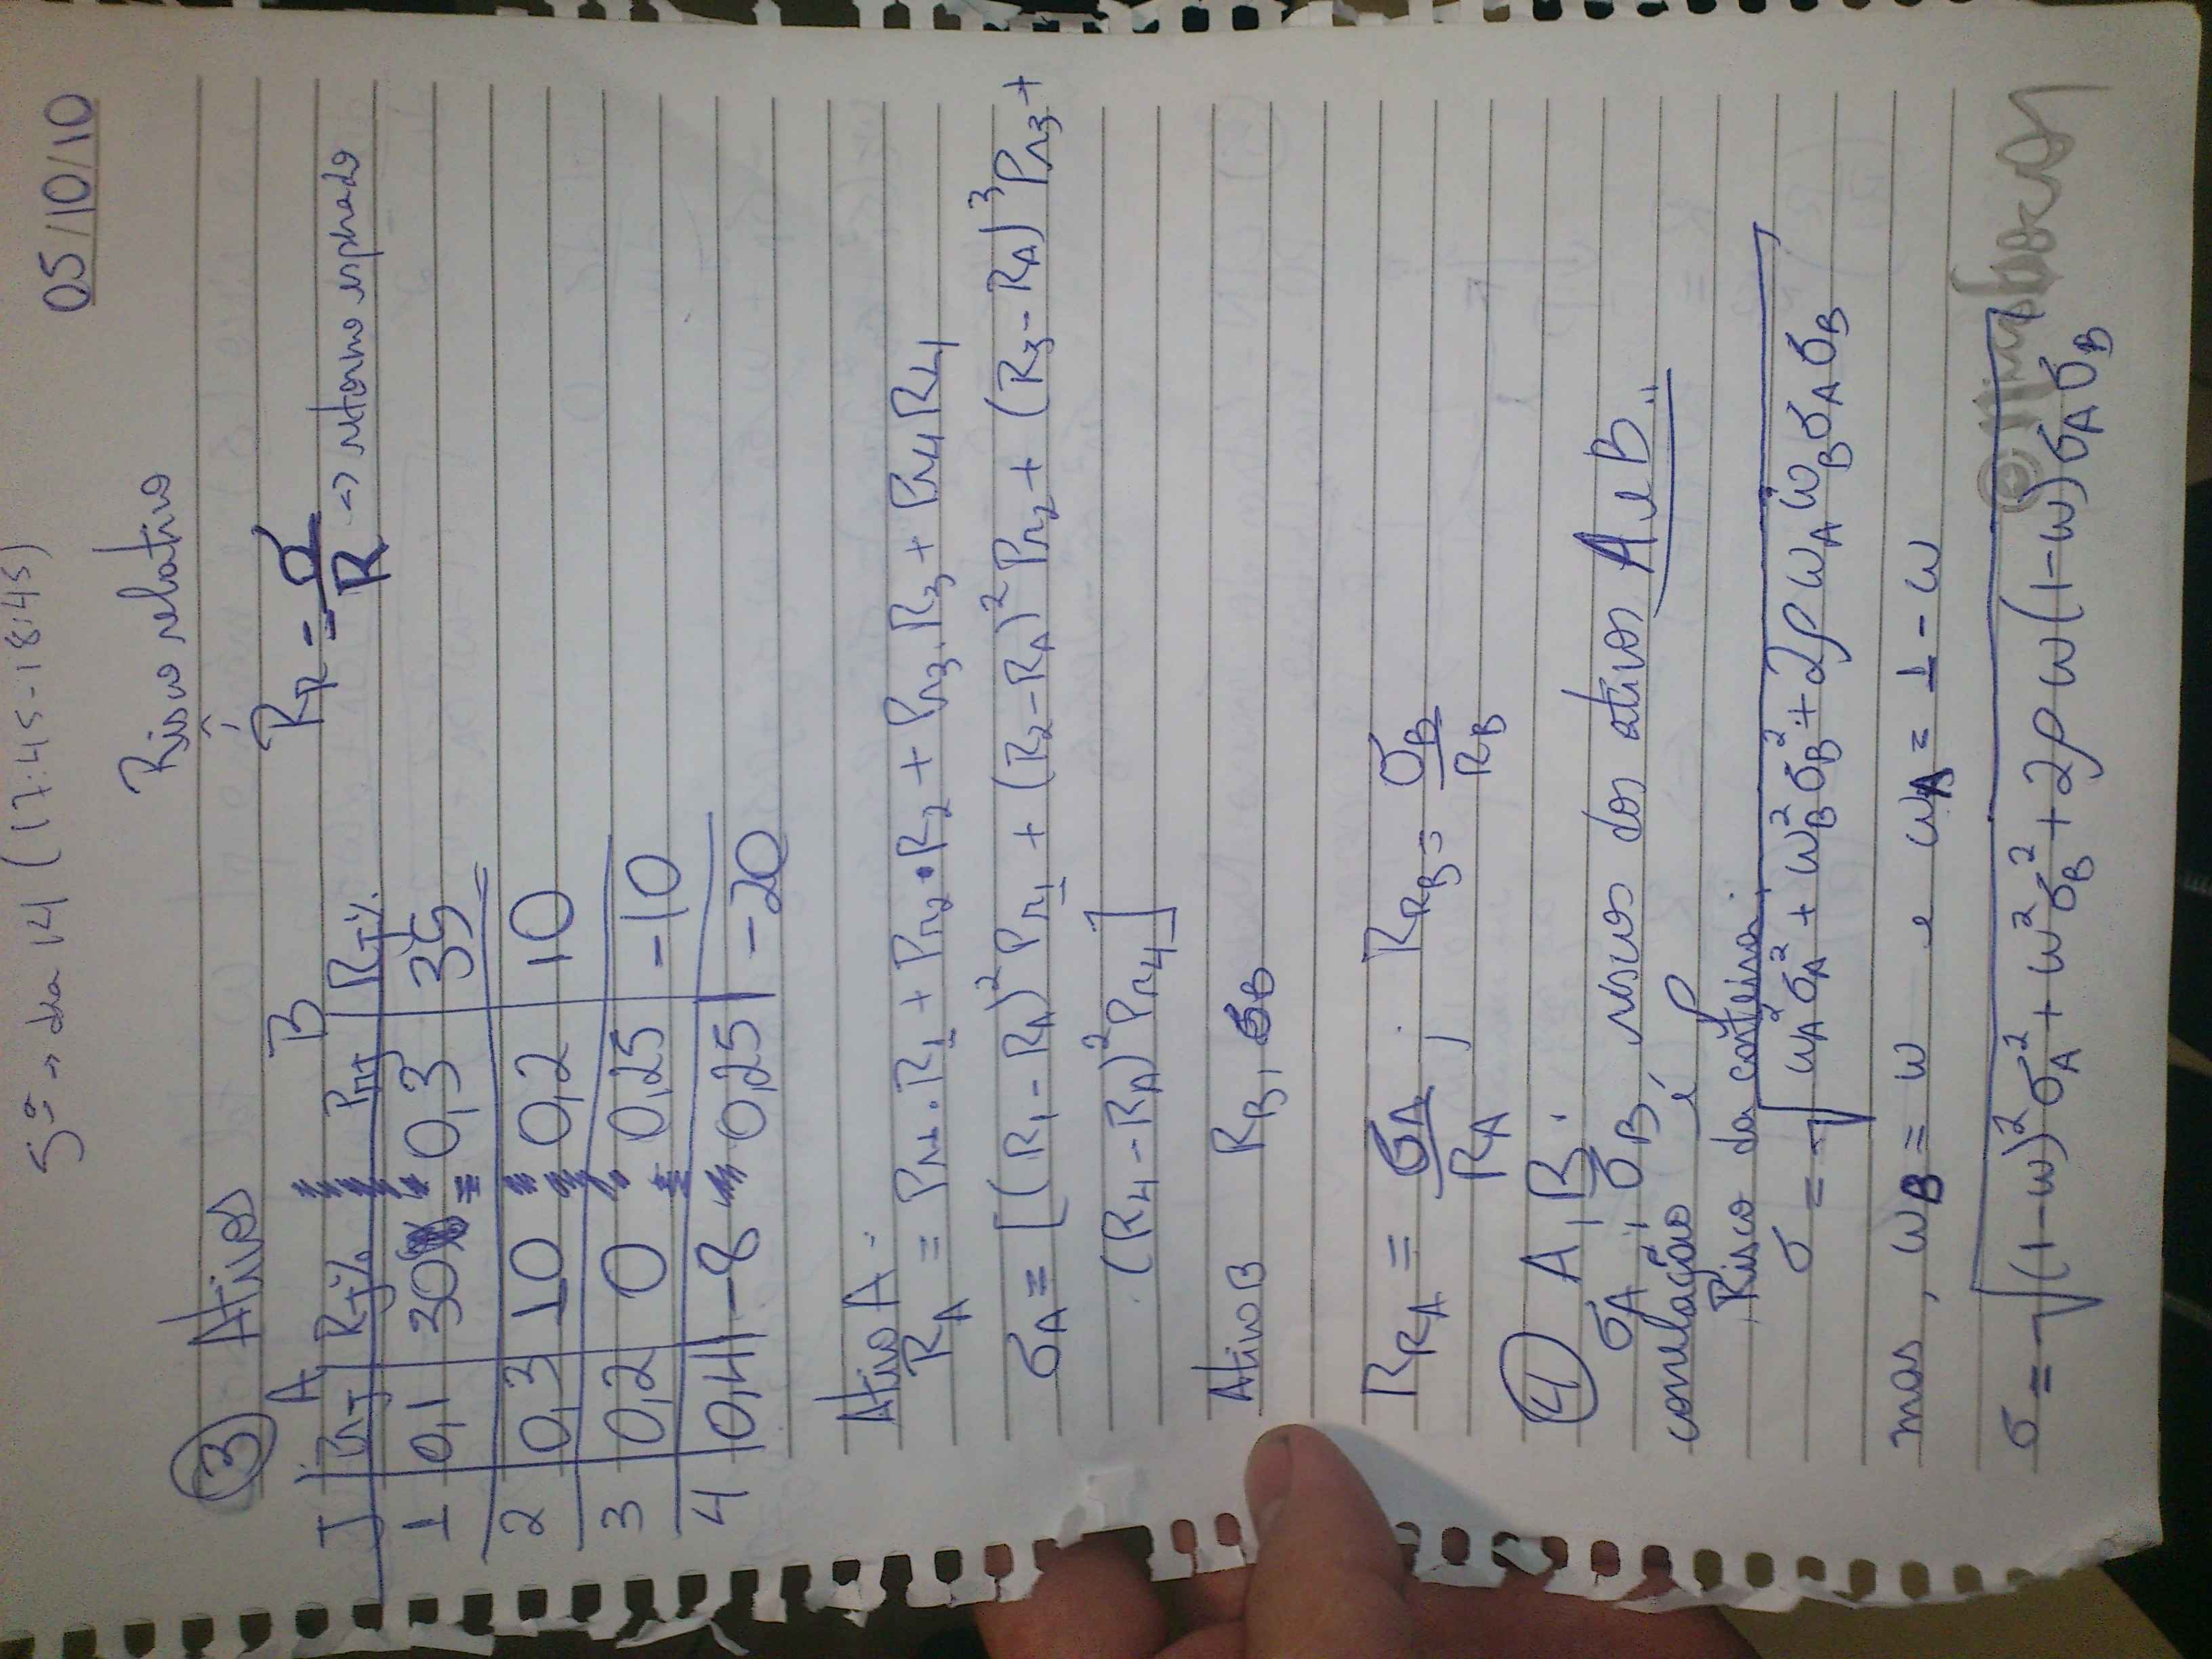 5ª → dia 14 (17:45-18:45)
05/10/10
③ Ativos
Risco relativo
A B
R_R = σ/R → retorno esperado
J Pr_J R_J% Pr_J R_J%
1 0,1 30 0,3 35
2 0,3 10 0,2 10
3 0,2 0 0,25 -10
4 0,4 -8 0,25 -20
Ativo A
R_A = Pr1.R1 + Pr2.R2 + Pr3.R3 + Pr4R4
σ_A = [(R1-R_A)²Pr1 + (R2-R_A)²Pr2 + (R3-R_A)³Pr3+
(R4-R_A)²Pr4]
Ativo B R_B, σ_B
R_RA = σ_A/R_A ; R_RB = σ_B/R_B
④ A, B.
σ_A, σ_B riscos dos ativos A e B.
correlação é ρ
Risco da carteira:
σ = √(w_A²σ_A² + w_B²σ_B² + 2ρ w_A w_B σ_A σ_B)
mas, w_B = w e w_A = 1 - w
σ = √((1-w)²σ_A² + w²σ_B² + 2ρ w(1-w)σ_A σ_B)